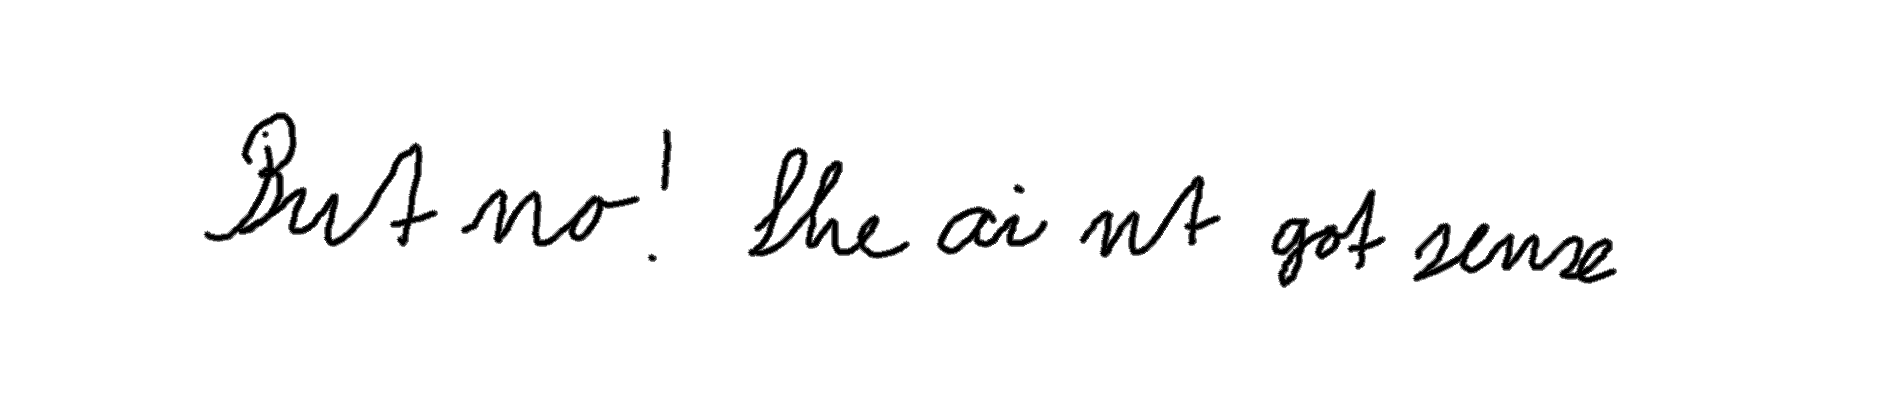 But no! She ai nt got sense